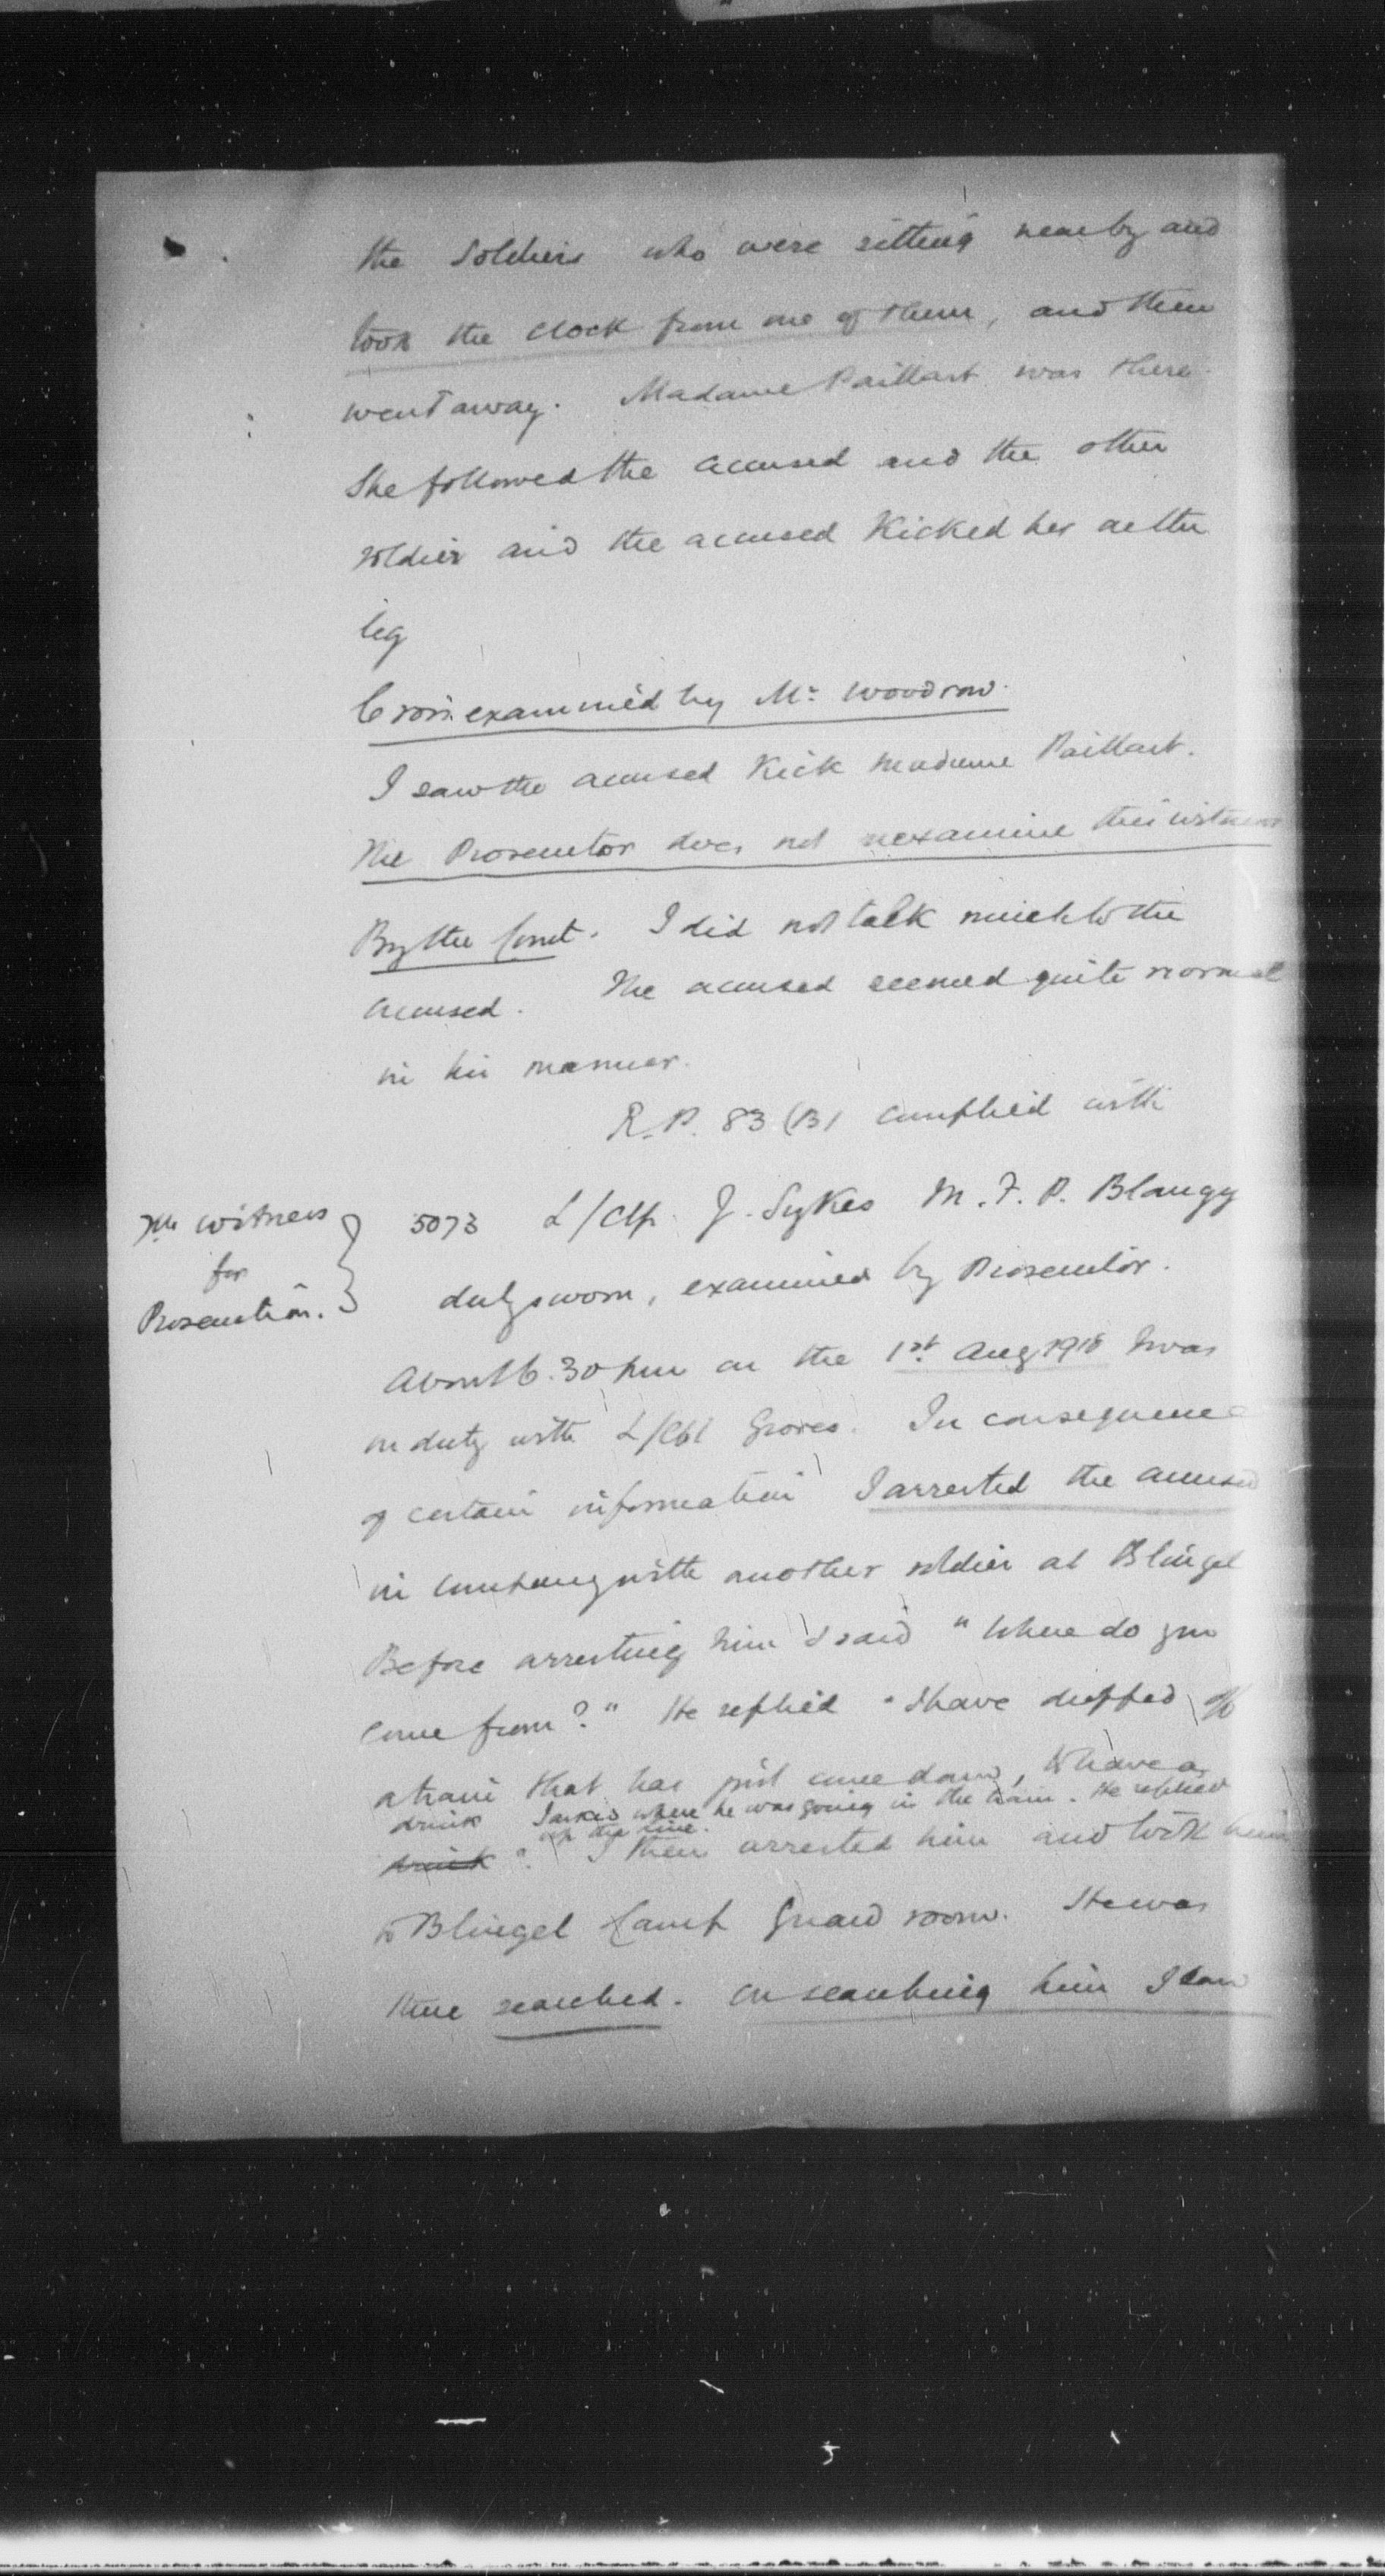 the soldiers who were sitting nearby and
took the clock from one of them, and then
went away. Madame Paillart was there.
She followed the accused and the other
soldier and the accused Kicked her on the
leg
Cross examined by Mr Woodrow.
I saw the accused Kick Madame Paillart.
The Prosecutor does not reexamine this witness
By the Court. I did not talk much to the
accused. The accused seemed quite normal
in his manner.
R.P. 83 (B) complied with
7th witness
for
Prosecution.
5073 L/Cpl J. Sykes M.F.P. Blangy
duly sworn, examined by Prosecutor.
About 6.30 pm on the 1st Aug 1918 I was
on duty with L/Cpl Groves. In consequence
of certain information I arrested the accused
in company with another soldier at Blingel
Before arresting him I said "Where do you
come from?" He replied "I have dropped off
a train that has just come down, to have a
drink I asked where he was going in the train. He replied
up the line.
drink". I then arrested him and took him
to Blingel Camp Guard room. He was
there searched. On searching him I saw